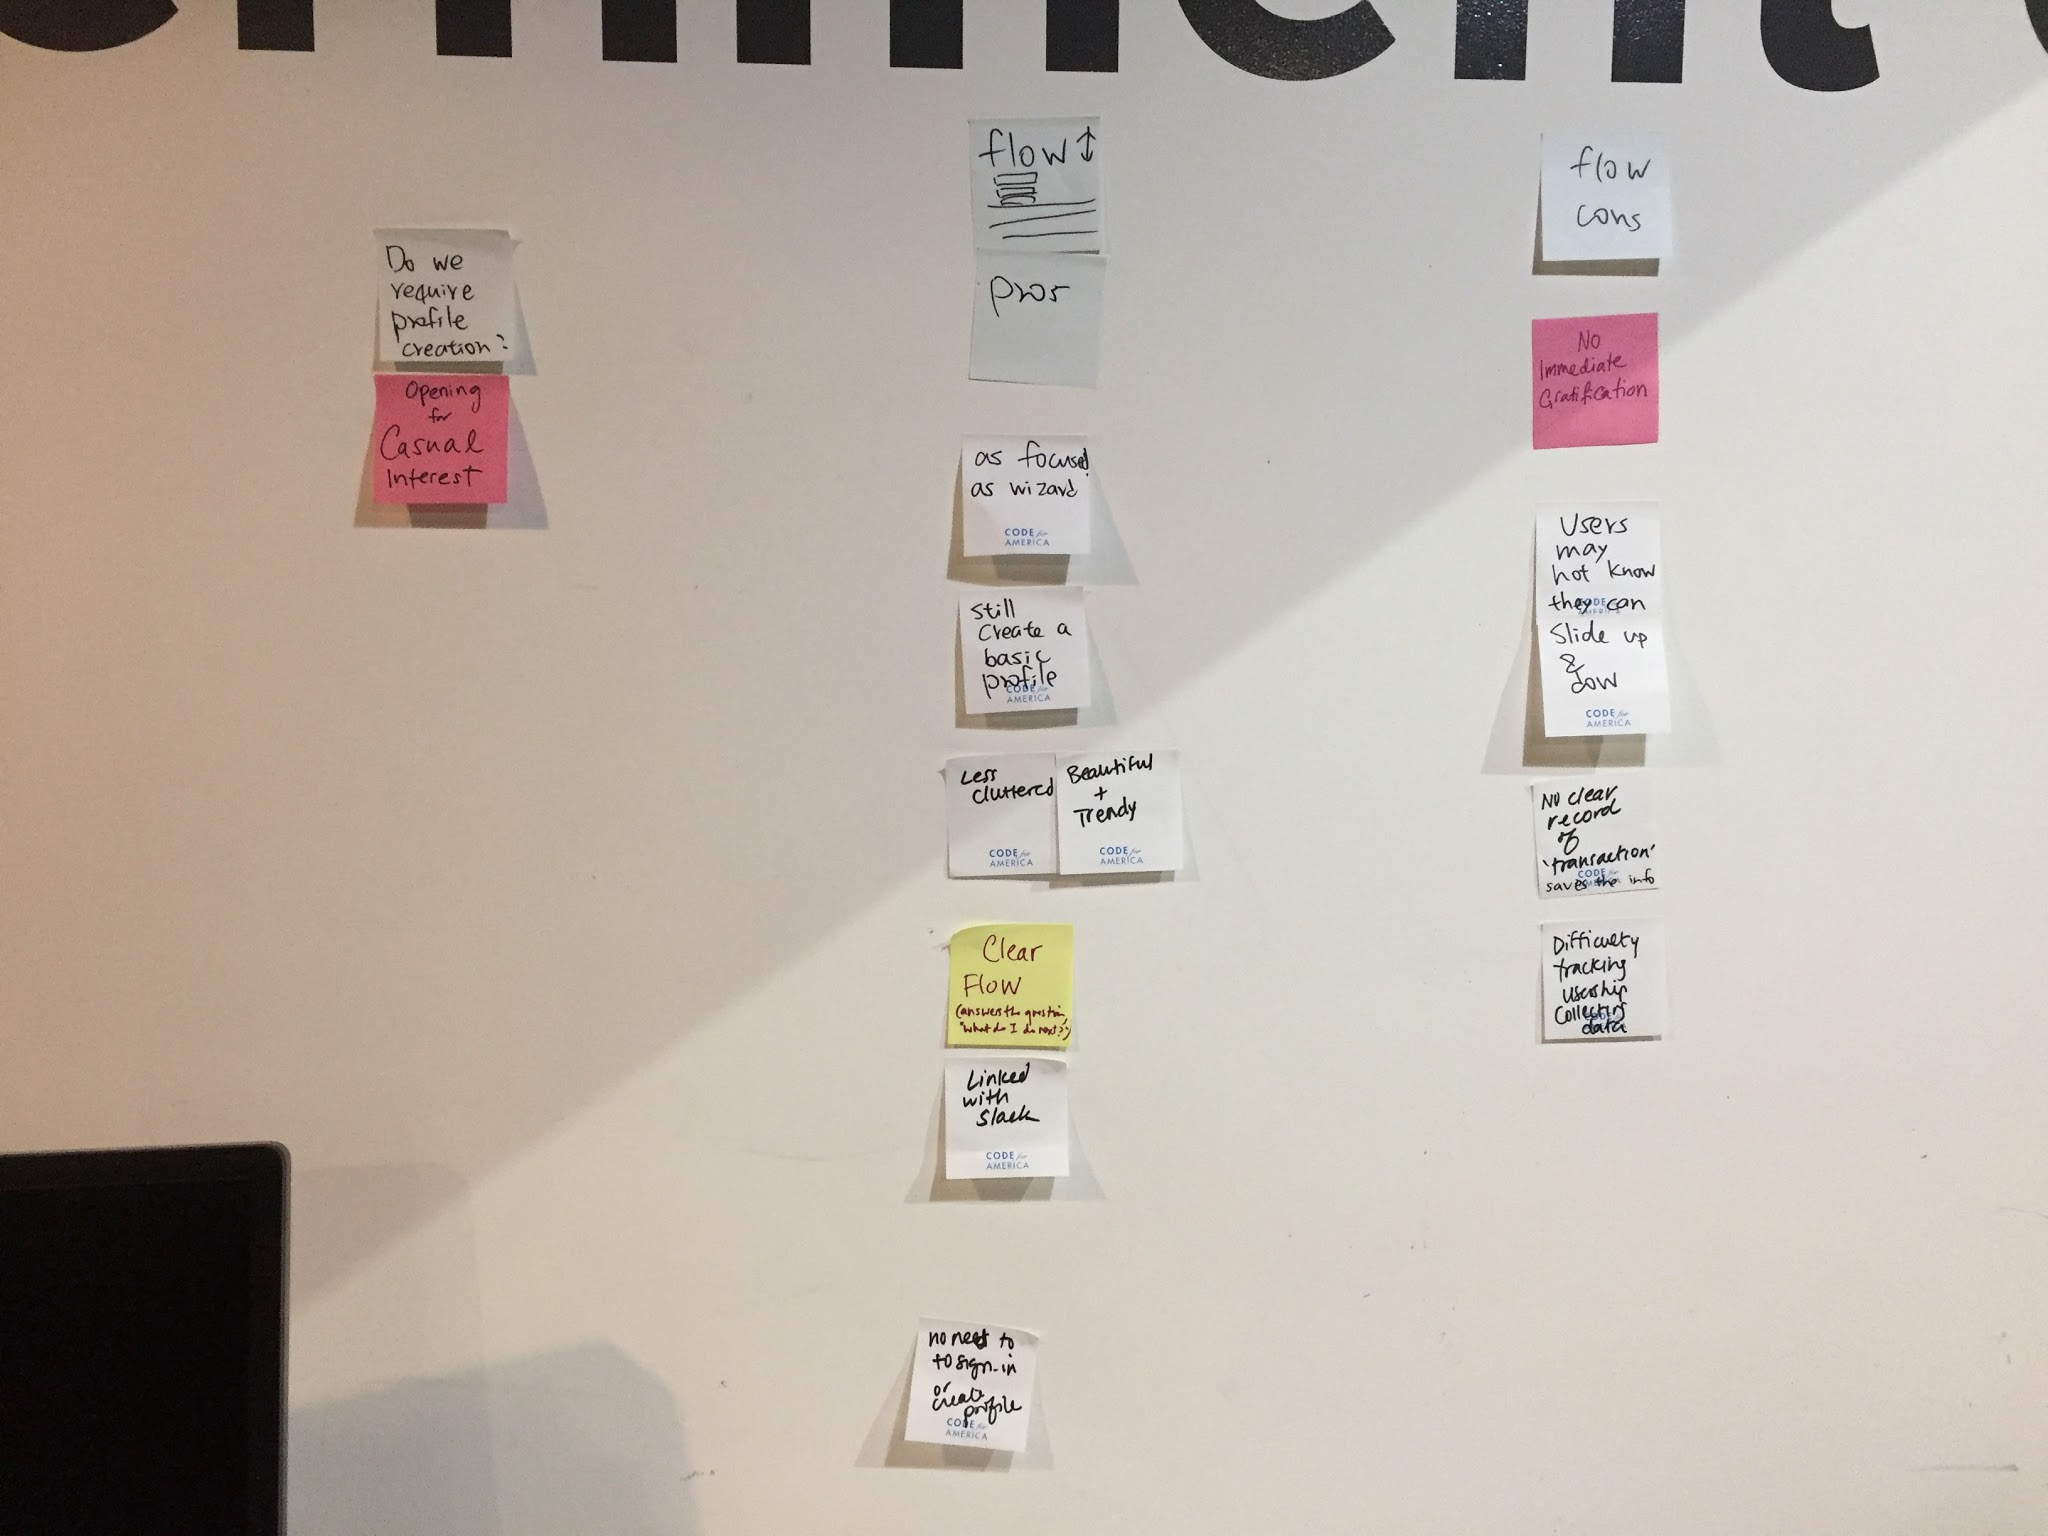 Do we
require
profile
creation?
Opening
for
Casual
Interest
flow
pros
as focused
as wizard!
CODE for
AMERICA
still
create a
basic
profile
CODE for
AMERICA
Less
cluttered
CODE for
AMERICA
Beautiful
+
Trendy
CODE for
AMERICA
Clear
Flow
(answers the question,
"What do I do next?")
Linked
with
Slack
CODE for
AMERICA
no need to
to sign-in
or
create
profile
CODE for
AMERICA
flow
cons
No
Immediate
Gratification
Users
may
not know
they can
CODE
AMERICA
Slide up
&
dow
CODE for
AMERICA
No clear
record
of
'transaction'
CODE
saves the info
Difficulty
tracking
Usership
Collecting
data